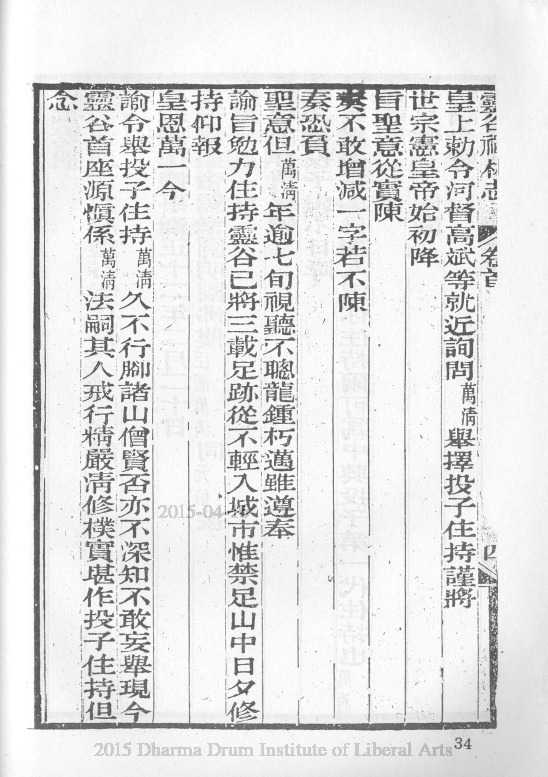 靈谷禪林志 卷首 四
皇上勅令河督高斌等就近詢問萬清舉擇投子住持謹將
世宗憲皇帝始初降
旨聖意從實陳
奏不敢增減一字若不陳
奏恐負
聖意但萬清年逾七旬視聽不聰龍鍾朽邁雖遵奉
諭旨勉力住持靈谷已將三載足跡從不輕入城市惟禁足山中日夕修
持仰報
皇恩萬一今
諭令舉投子住持萬清久不行腳諸山僧賢否亦不深知不敢妄舉現今
靈谷首座源慎係萬清法嗣其人戒行精嚴清修樸實堪作投子住持但
念
34
2015-04
2015 Dharma Drum Institute of Liberal Arts